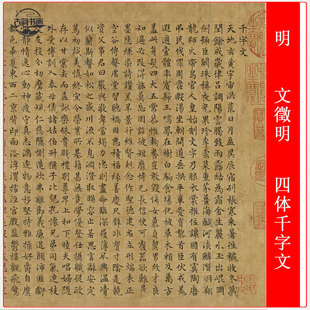 古韵书画
明 文徵明 四体千字文
千字文
天地玄黃宇宙洪荒日月盈昃辰宿列張寒來暑往秋收冬藏
閏餘成歲律呂調陽雲騰致雨露結為霜金生麗水玉出崑岡
劍號巨闕珠稱夜光果珍李柰菜重芥薑海鹹河淡鱗潛羽翔
龍師火帝鳥官人皇始制文字乃服衣裳推位讓國有虞陶唐
弔民伐罪周發殷湯坐朝問道垂拱平章愛育黎首臣伏戎羌
遐邇壹體率賓歸王鳴鳳在樹白駒食場化被草木賴及萬方
蓋此身髮四大五常恭惟鞠養豈敢毀傷女慕貞潔男效才良
知過必改得能莫忘罔談彼短靡恃己長信使可覆器欲難量
墨悲絲染詩讚羔羊景行維賢克念作聖德建名立形端表正
空谷傳聲虛堂習聽禍因惡積福緣善慶尺璧非寶寸陰是競
資父事君曰嚴與敬孝當竭力忠則盡命臨深履薄夙興溫凊
似蘭斯馨如松之盛川流不息淵澄取暎容止若思言辭安定
篤初誠美慎終宜令榮業所基籍甚無竟學優登仕攝職從政
存以甘棠去而益詠樂殊貴賤禮別尊卑上和下睦夫唱婦隨
外受傅訓入奉母儀諸姑伯叔猶子比兒孔懷兄弟同氣連枝
交友投分切磨箴規仁慈隱惻造次弗離節義廉退顛沛匪虧
性靜情逸心動神疲守真志滿逐物意移堅持雅操好爵自縻
華夏東西二京背邙面洛浮渭據涇